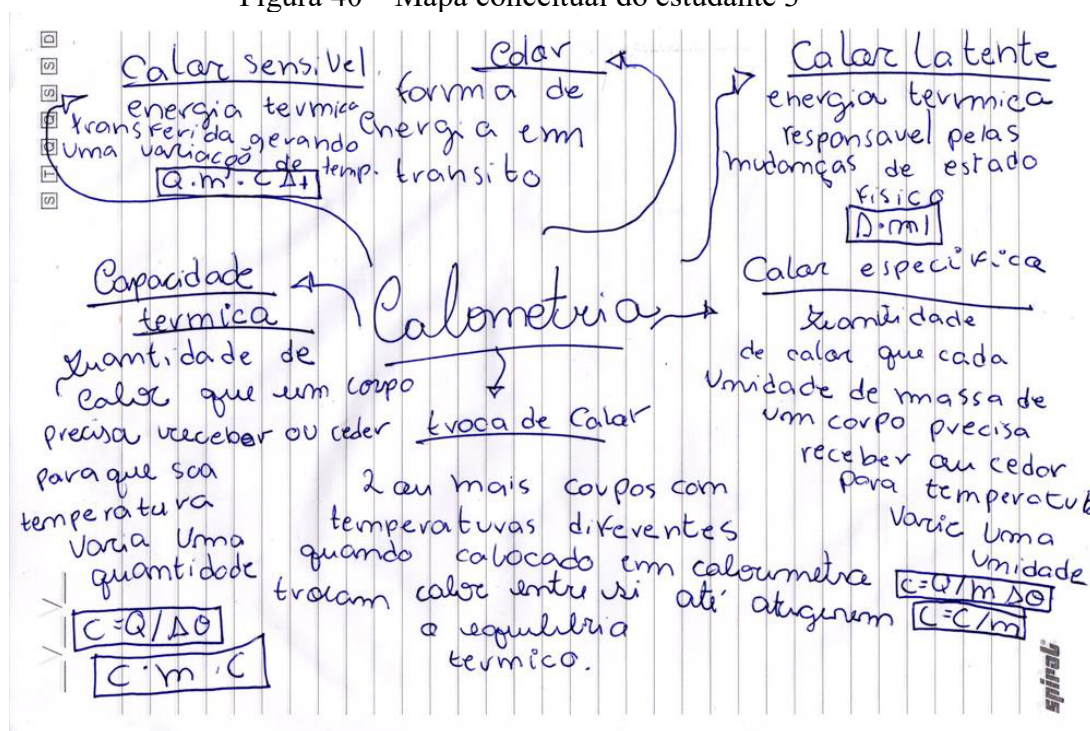 Figura 40 – Mapa conceitual do estudante 3
D
S
S
Q
Q
T
S
Calor sensivel
energia termica
transferida gerando
uma variação de temp.
Q.m.CΔt
Calor
forma de
energia em
transito
Calor latente
energia termica
responsavel pelas
mudanças de estado
fisico
Q.ml
Capacidade
termica
Quantidade de
Calor que um corpo
precisa receber ou ceder
para que sua
temperatura
Varia Uma
quantidade
C=Q/Δθ
C.m.C
Calometria
troca de Calor
2 ou mais corpos com
temperaturas diferentes
quando colocado em calourmetro
trocam calor entre si até atigerem
o equilibrio
termico.
Calor especifica
Quantidade
de calor que cada
Unidade de massa de
um corpo precisa
receber ou ceder
para temperatu
Varie Uma
Unidade
C=Q/mΔθ
C=C/m
spiral